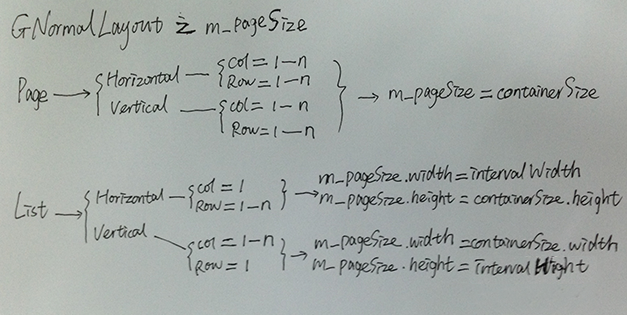 GNormalLayout 之 m_pageSize
Page → { Horizontal — { col = 1—n
Row = 1—n
Vertical — { col = 1—n
Row = 1—n } → m_pageSize = containerSize
List → { Horizontal — { col = 1
Row = 1—n } → m_pageSize.width = intervalWidth
m_pageSize.height = containerSize.height
Vertical — { col = 1—n
Row = 1 } → m_pageSize.width = containerSize.width
m_pageSize.height = intervalHight